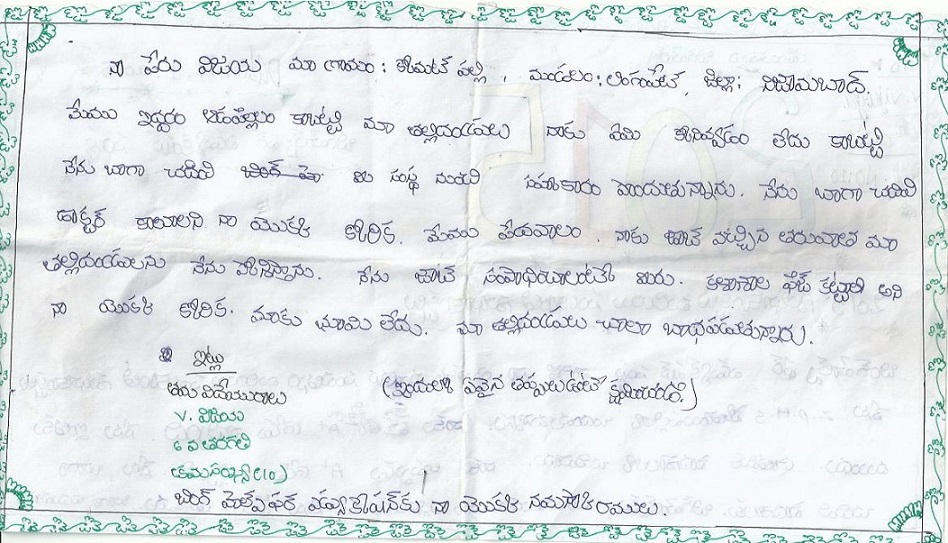 నా పేరు విజయ మా గ్రామం: కోమటి పల్లి, మండలం: లింగంపేట, జిల్లా: నిజామబాద్.
మేము ఇద్దరం ఆడపిల్లలం కాబట్టి మా తల్లిదండ్రులు నాకు ఏమి కొనివ్వడం లేదు కాబట్టి
నేను బాగా చదివి మీ సంస్థ నుంచి సహకారం పొందుతున్నాను. నేను బాగా చదివి
డాక్టర్ కావాలని నా యొక్క కోరిక. మేము పేదవాలం. నాకు జాబ్ వచ్చిన తరువాత మా
తల్లిదండ్రులను నేను పోషిస్తాను. నేను జాబ్ సంపాదియాలంటే మీరు. కళాశాల ఫీజ్ కట్టాలి అని
నా యొక్క కోరిక. మాకు భూమి లేదు. మా తల్లిదండ్రులు చాలా బాధపడుతున్నారు.
ఇట్లు
తమ విదేయురాలు (ఇందులో ఏవైన తప్పులుంటే క్షమించండి.)
V. విజయ
6 వ తరగతి
నా యొక్క నమస్కారములు.